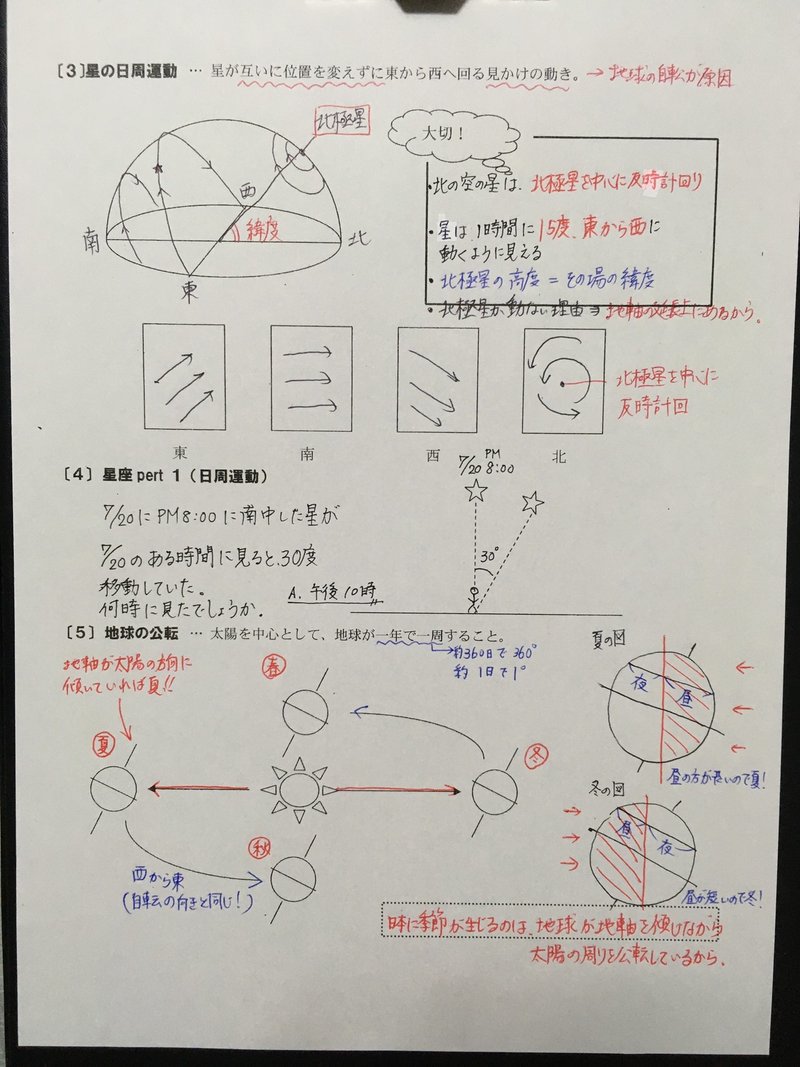 〔3〕星の日周運動 … 星が互いに位置を変えずに東から西へ回る見かけの動き。→地球の自転が原因
北極星
西
緯度
南
北
東
大切！
・北の空の星は、北極星を中心に反時計回り
・星は1時間に15度、東から西に
動くように見える
・北極星の高度=その場の緯度
・北極星が動かない理由⇒地軸の延長上にあるから。
北極星を中心に
反時計回
東
南
西
北
〔4〕星座pert 1（日周運動）
7/20にPM8:00に南中した星が
7/20のある時間に見ると、30度
移動していた。
何時に見たでしょうか.
A. 午後10時
7/20 PM 8:00
30°
〔5〕地球の公転 … 太陽を中心として、地球が一年で一周すること。
約360日で360°
約1日で1°
地軸が太陽の方向に
傾いていれば夏!!
春
夏
冬
秋
西から東
(自転の向きと同じ!)
夏の図
夜
昼
昼の方が長いので夏!
冬の図
昼
夜
昼が短いので冬!
日本に季節が生じるのは、地球が地軸を傾けながら
太陽の周りを公転しているから.